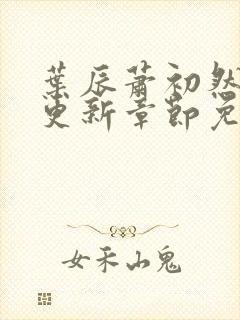 葉辰蕭初然
更新章節免
女禾山鬼